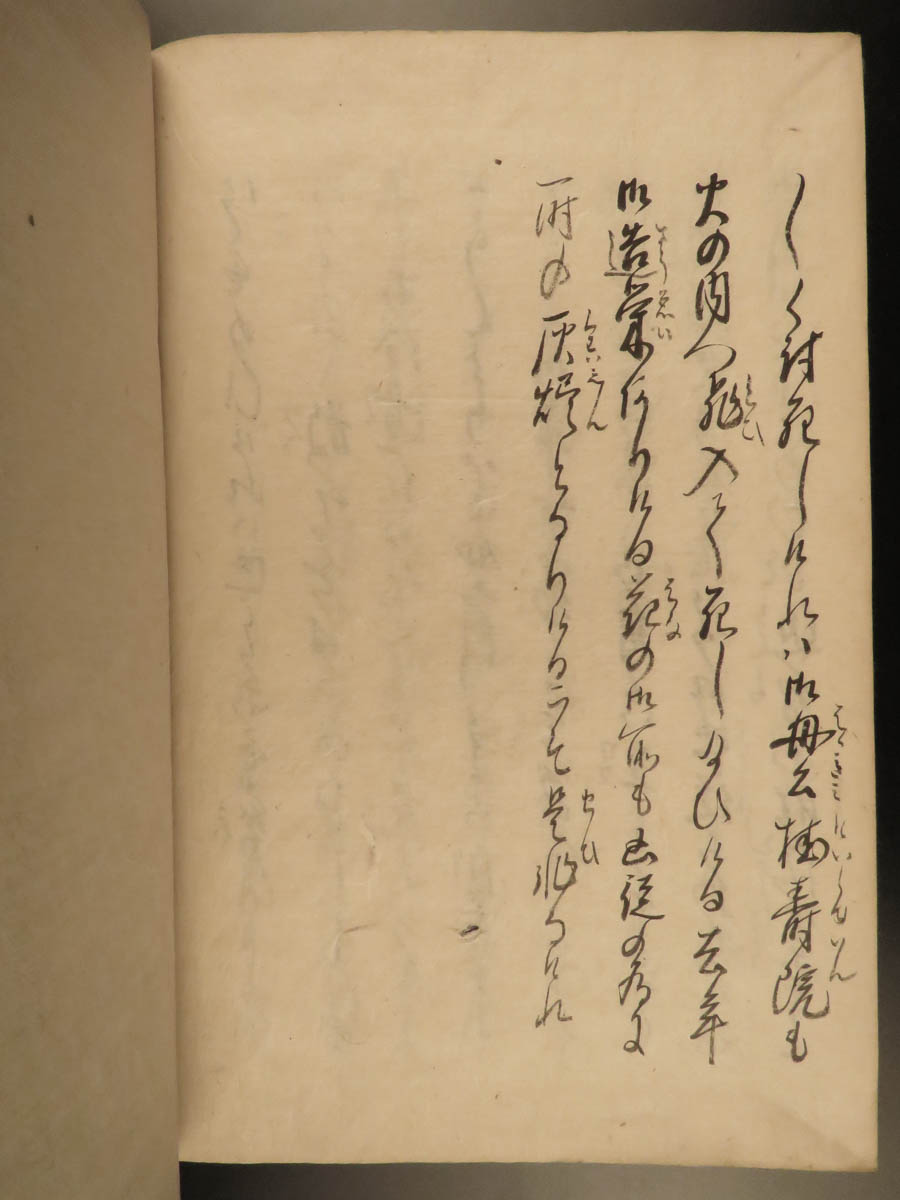 しく討死しけれハ御母公桂寿院も
火の内へ飛入て死し給ひける去年
御造栄ありける花の御所も凶徒の為に
一時の灰燼となりけるこそ是非なけれ